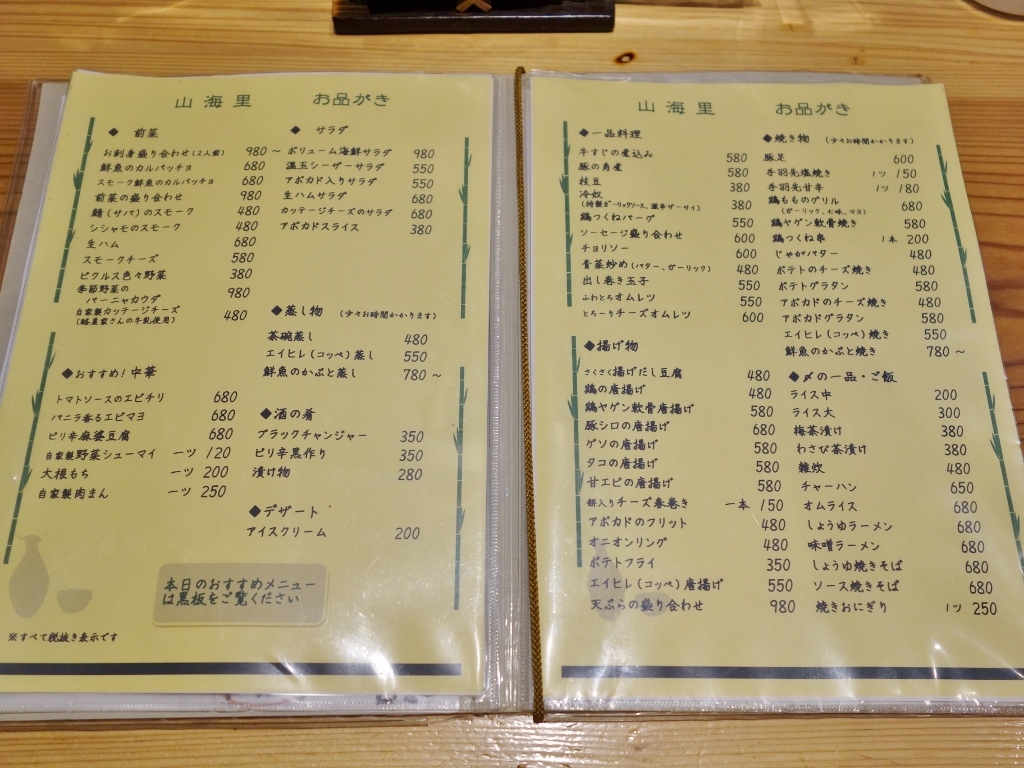 山海里 お品がき
◆ 前菜
お刺身盛り合わせ(2人前) 980～
鮮魚のカルパッチョ 680
スモーク鮮魚のカルパッチョ 680
前菜の盛り合わせ 980
鯖(サバ)のスモーク 480
シシャモのスモーク 480
生ハム 680
スモークチーズ 580
ピクルス色々野菜 380
季節野菜の
バーニャカウダ 980
自家製カッテージチーズ
(酪農家さんの牛乳使用) 480
◆おすすめ!中華
トマトソースのエビチリ 680
バニラ香るエビマヨ 680
ピリ辛麻婆豆腐 680
自家製野菜シューマイ 一ツ 120
大根もち 一ツ 200
自家製肉まん 一ツ 250
◆ サラダ
ボリューム海鮮サラダ 980
温玉シーザーサラダ 550
アボカド入りサラダ 550
生ハムサラダ 680
カッテージチーズのサラダ 680
アボカドスライス 380
◆蒸し物 (少々お時間かかります)
茶碗蒸し 480
エイヒレ(コッペ)蒸し 550
鮮魚のかぶと蒸し 780～
◆酒の肴
ブラックチャンジャー 350
ピリ辛黒作り 350
漬け物 280
◆デザート
アイスクリーム 200
本日のおすすめメニュー
は黒板をご覧ください
※すべて税抜き表示です
山海里 お品がき
◆一品料理
牛すじの煮込み 580
豚の角煮 580
枝豆 380
冷奴
(特製ガーリックソース、激辛ザーサイ) 380
鶏つくねバーグ 550
ソーセージ盛り合わせ 600
チョリソー 600
青菜炒め(バター、ガーリック) 480
出し巻き玉子 550
ふわとろオムレツ 550
とろーりチーズオムレツ 600
◆揚げ物
さくさく揚げだし豆腐 480
鶏の唐揚げ 480
鶏ヤゲン軟骨唐揚げ 580
豚シロの唐揚げ 680
ゲソの唐揚げ 580
タコの唐揚げ 580
甘エビの唐揚げ 580
餅入りチーズ春巻き 一本 150
アボカドのフリット 480
オニオンリング 480
ポテトフライ 350
エイヒレ(コッペ)唐揚げ 550
天ぷらの盛り合わせ 980
◆焼き物 (少々お時間かかります)
豚足 600
手羽先塩焼き 1ツ 150
手羽先甘辛 1ツ 180
鶏もものグリル 680
(ガーリック、七味、マヨ)
鶏ヤゲン軟骨焼き 580
鶏つくね串 1本 200
じゃがバター 480
ポテトのチーズ焼き 480
ポテトグラタン 580
アボカドのチーズ焼き 480
アボカドグラタン 580
エイヒレ(コッペ)焼き 550
鮮魚のかぶと焼き 780～
◆〆の一品・ご飯
ライス中 200
ライス大 300
梅茶漬け 380
わさび茶漬け 380
雑炊 480
チャーハン 650
オムライス 680
しょうゆラーメン 680
味噌ラーメン 680
しょうゆ焼きそば 680
ソース焼きそば 680
焼きおにぎり 1ツ 250